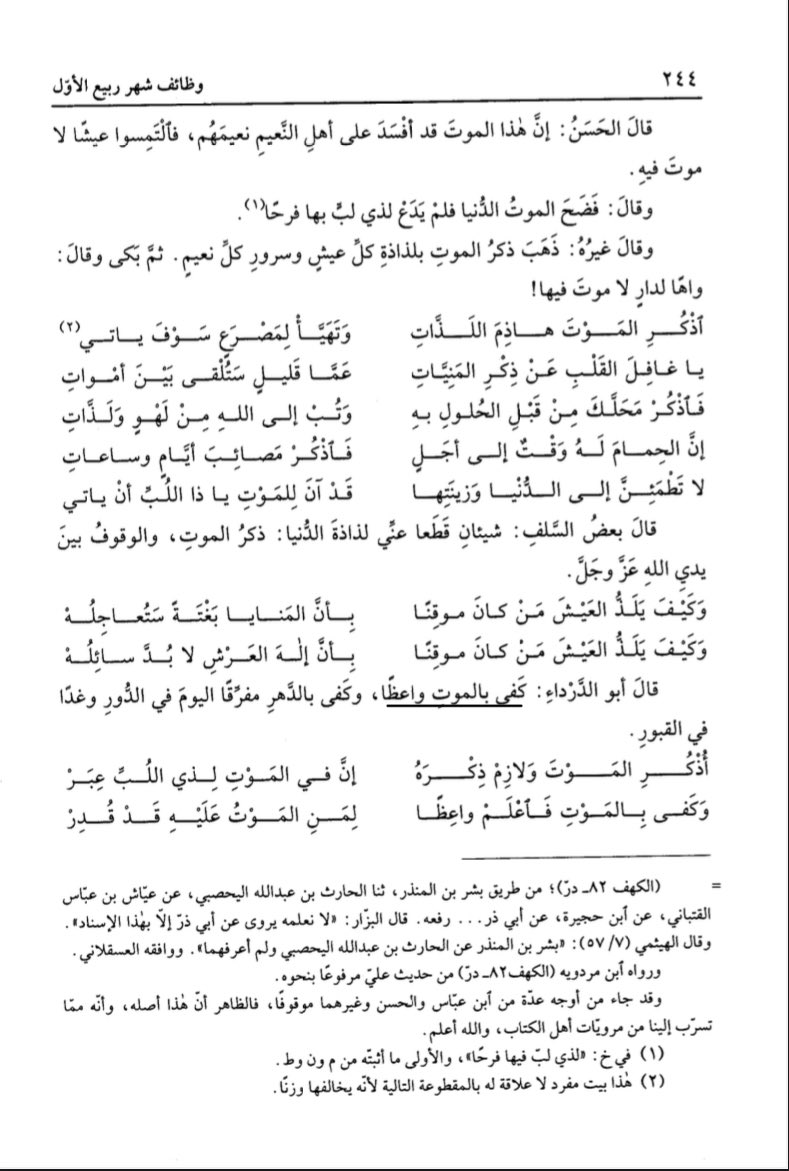 ٢٤٤ وظائف شهر ربيع الأوّل
قالَ الحَسَنُ: إنَّ هٰذا الموتَ قد أفْسَدَ على أهلِ النَّعيمِ نعيمَهُم، فٱلْتَمِسوا عيشًا لا
موتَ فيهِ.
وقالَ: فَضَحَ الموتُ الدُّنيا فلمْ يَدَعْ لذي لبٍّ بها فرحًا(١).
وقالَ غيرُهُ: ذَهَبَ ذكرُ الموتِ بلذاذةِ كلِّ عيشٍ وسرورِ كلِّ نعيمٍ. ثمَّ بَكى وقالَ:
واهًا لدارٍ لا موتَ فيها!
ٱذْكُـرِ المَـوْتَ هـاذِمَ اللَـذَّاتِ وَتَهَيَّـأْ لِمَصْـرَعٍ سَـوْفَ يـاتـي(٢)
يـا غـافِـلَ القَلْـبِ عَـنْ ذِكْـرِ المَنِيَّـاتِ عَمَّـا قَليـلٍ سَتُلْقـى بَيْـنَ أمْـواتِ
فَـٱذْكُـرْ مَحَلَّـكَ مِـنْ قَبْـلِ الحُلـولِ بـهِ وَتُـبْ إلـى اللـهِ مِـنْ لَهْـوٍ وَلَـذَّاتِ
إنَّ الحِمـامَ لَـهُ وَقْـتٌ إلـى أجَـلٍ فَـٱذْكُـرْ مَصـائِـبَ أيَّـامٍ وسـاعـاتِ
لا تَطْمَئِـنَّ إلـى الـدُّنْيـا وَزينَتِهـا قَـدْ آنَ لِلمَـوْتِ يـا ذا اللُـبِّ أنْ يـاتـي
قالَ بعضُ السَّلفِ: شيئانِ قَطَعا عنِّي لذاذةَ الدُّنيا: ذكرُ الموتِ، والوقوفُ بينَ
يديِ اللهِ عَزَّ وجَلَّ.
وَكَيْـفَ يَلَـذُّ العَيْـشَ مَـنْ كـانَ مـوقِنًـا بِـأنَّ المَنـايـا بَغْتَـةً سَتُعـاجِلُـهْ
وَكَيْـفَ يَلَـذُّ العَيْـشَ مَـنْ كـانَ مـوقِنًـا بِـأنَّ إلٰـهَ العَـرْشِ لا بُـدَّ سـائِلُـهْ
قالَ أبو الدَّرْداءِ: كَفى بالموتِ واعظًا، وكَفى بالدَّهرِ مفرِّقًا اليومَ في الدُّورِ وغدًا
في القبورِ.
أُذْكُـرِ المَـوْتَ وَلازِمْ ذِكْـرَهُ إنَّ فـي المَـوْتِ لِـذي اللُـبِّ عِبَـرْ
وَكَفـى بِـالمَـوْتِ فَـٱعْلَـمْ واعِظًـا لِمَـنِ المَـوْتُ عَلَيْـهِ قَـدْ قُـدِرْ
= (الكهف ٨٢ـ درّ)؛ من طريق بشر بن المنذر، ثنا الحارث بن عبدالله اليحصبي، عن عيّاش بن عبّاس
القتباني، عن ٱبن حجيرة، عن أبي ذر... رفعه. قال البزّار: «لا نعلمه يروى عن أبي ذرّ إلّا بهٰذا الإسناد».
وقال الهيثمي (٥٧/٧): «بشر بن المنذر عن الحارث بن عبدالله اليحصبي ولم أعرفهما». ووافقه العسقلاني.
ورواه ٱبن مردويه (الكهف٨٢ـ درّ) من حديث عليّ مرفوعًا بنحوه.
وقد جاء من أوجه عدّة من ٱبن عبّاس والحسن وغيرهما موقوفًا، فالظاهر أنّ هٰذا أصله، وأنّه ممّا
تسرّب إلينا من مرويّات أهل الكتاب، والله أعلم.
(١) في خ: «لذي لبّ فيها فرحًا»، والأولى ما أثبتّه من م ون وط.
(٢) هٰذا بيت مفرد لا علاقة له بالمقطوعة التالية لأنّه يخالفها وزنًا.